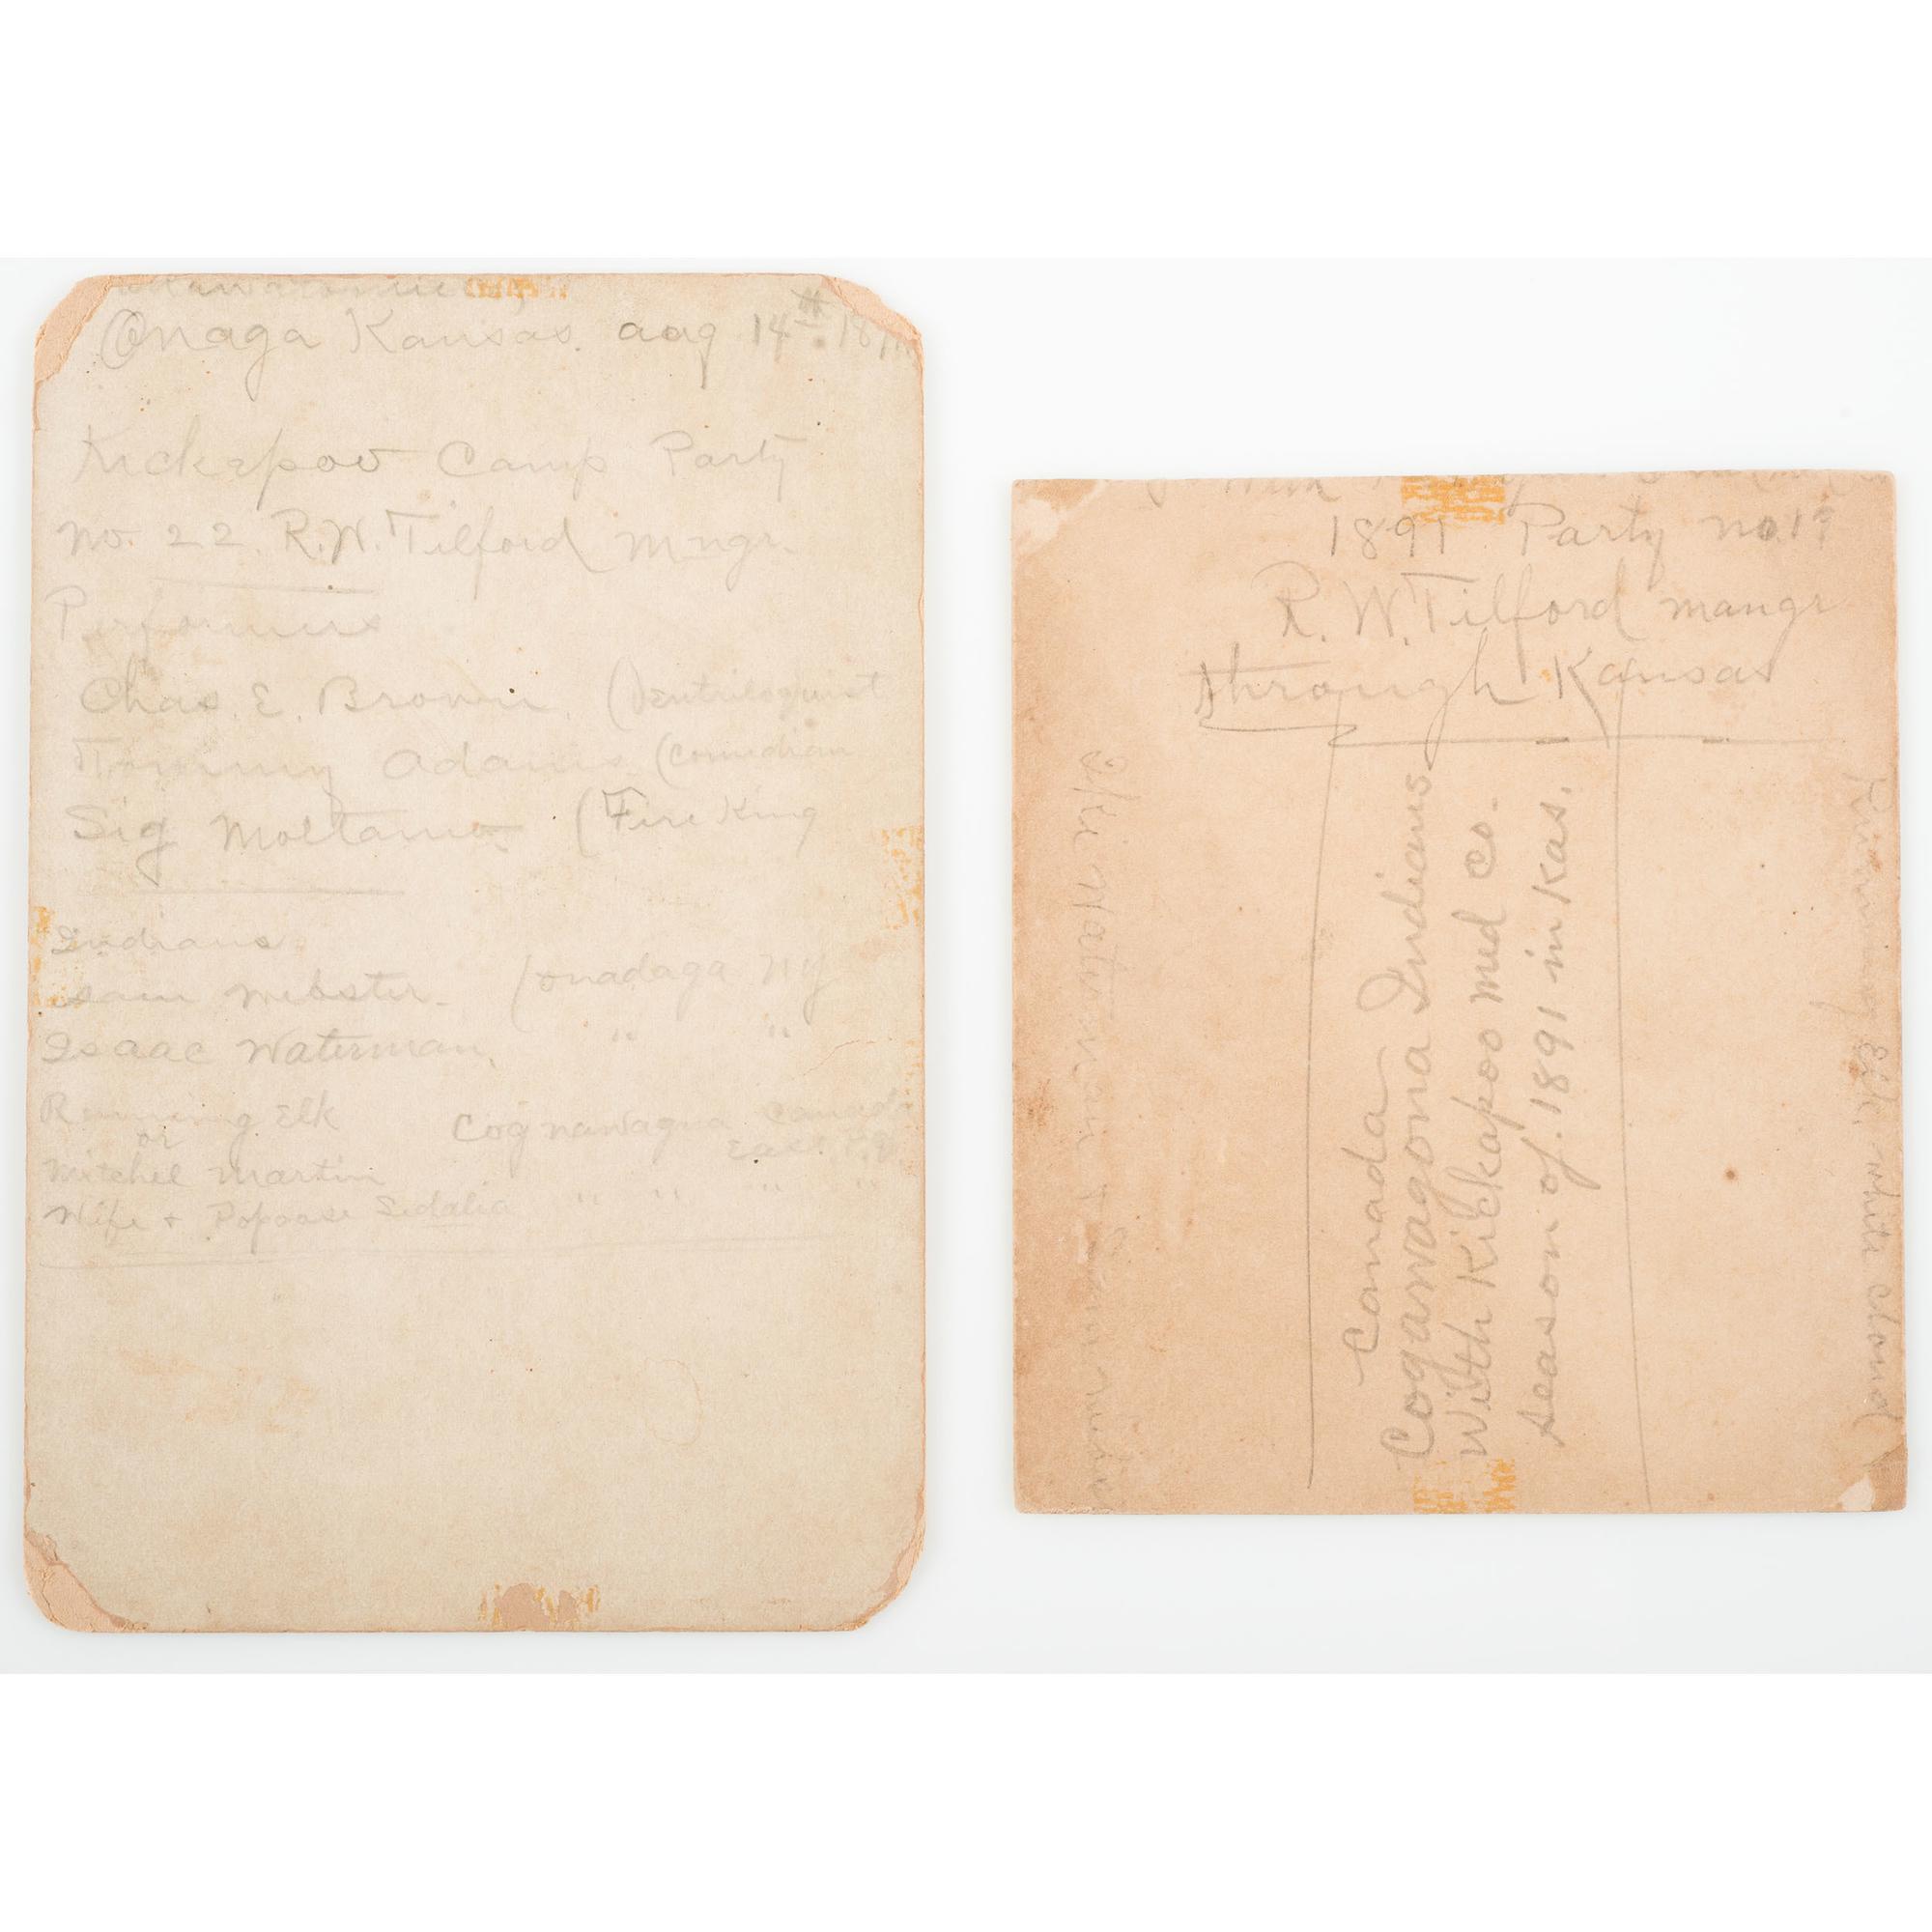 Onaga Kansas. aug 14th. 18
Kickepoo Camp Party
no. 22. R.W. Tilford Mngr.
Performers
Chas. E. Brown. (Ventriloquist
Tommy Adams. (Comedian
Sig Moltamo. (Fire King
Indians.
Sam Webster. (onadaga NY
Isaac Waterman. " "
Running Elk Cognawagua Canad
or
Mitchel Martin
Wife & Popoose Sedalia " " " "
1891 Party no. 19
R. W. Tilford mangr
through Kansas
Canada
Coganwagona Indians
With Kickapoo med co.
season of. 1891 in Kas.
Ike Waterman &
Running Elk. White cloud